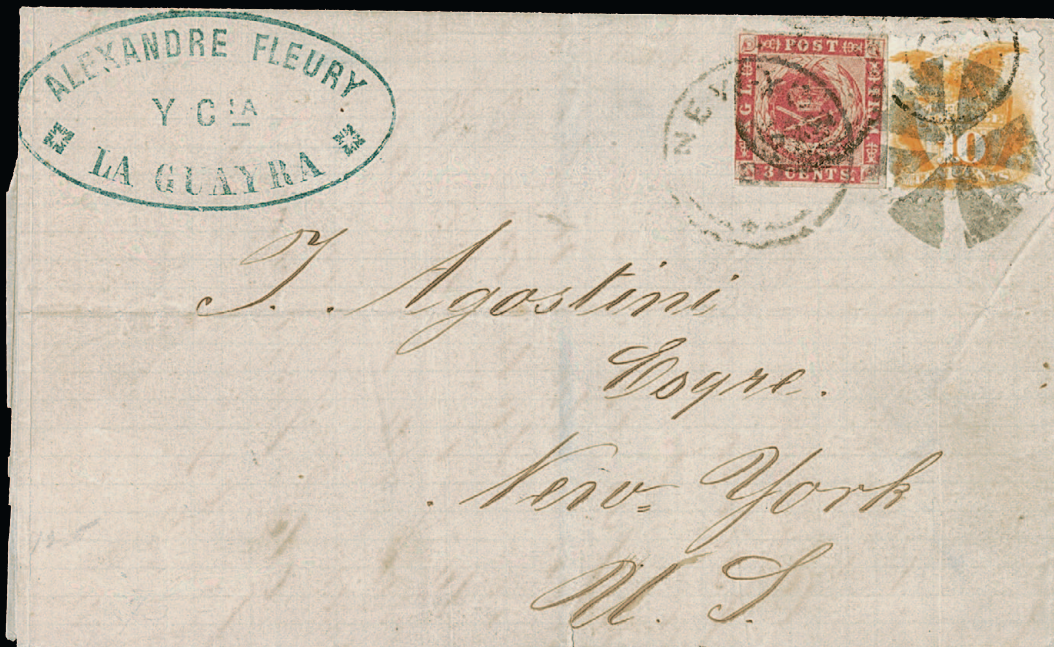 ALEXANDRE FLEURY
Y CIA
LA GUAYRA
POST
3 CENTS.
NEW
10
J. Agostini
Esqre.
New=York
U. S.